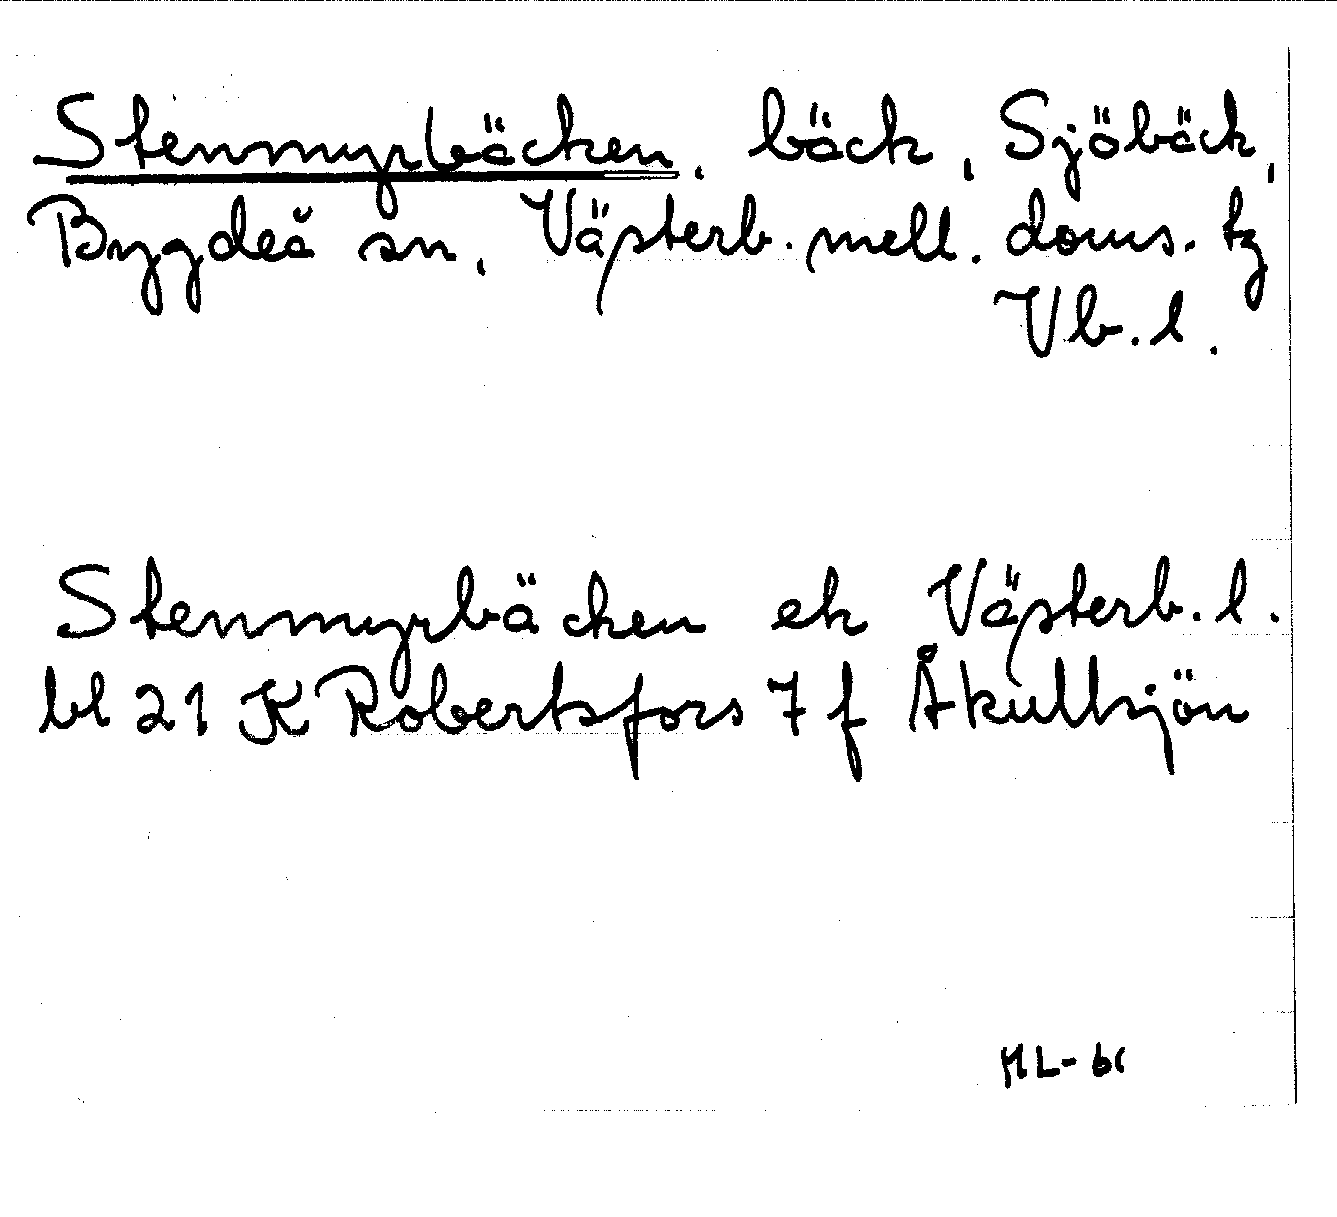 Stenmyrbäcken, bäck, Sjöbäck,
Bygdeå sn, Västerb. mell. doms. tg
Vb. l.
Stenmyrbäcken ek Västerb. l.
bl 21 K Robertsfors 7 f Åkullsjön